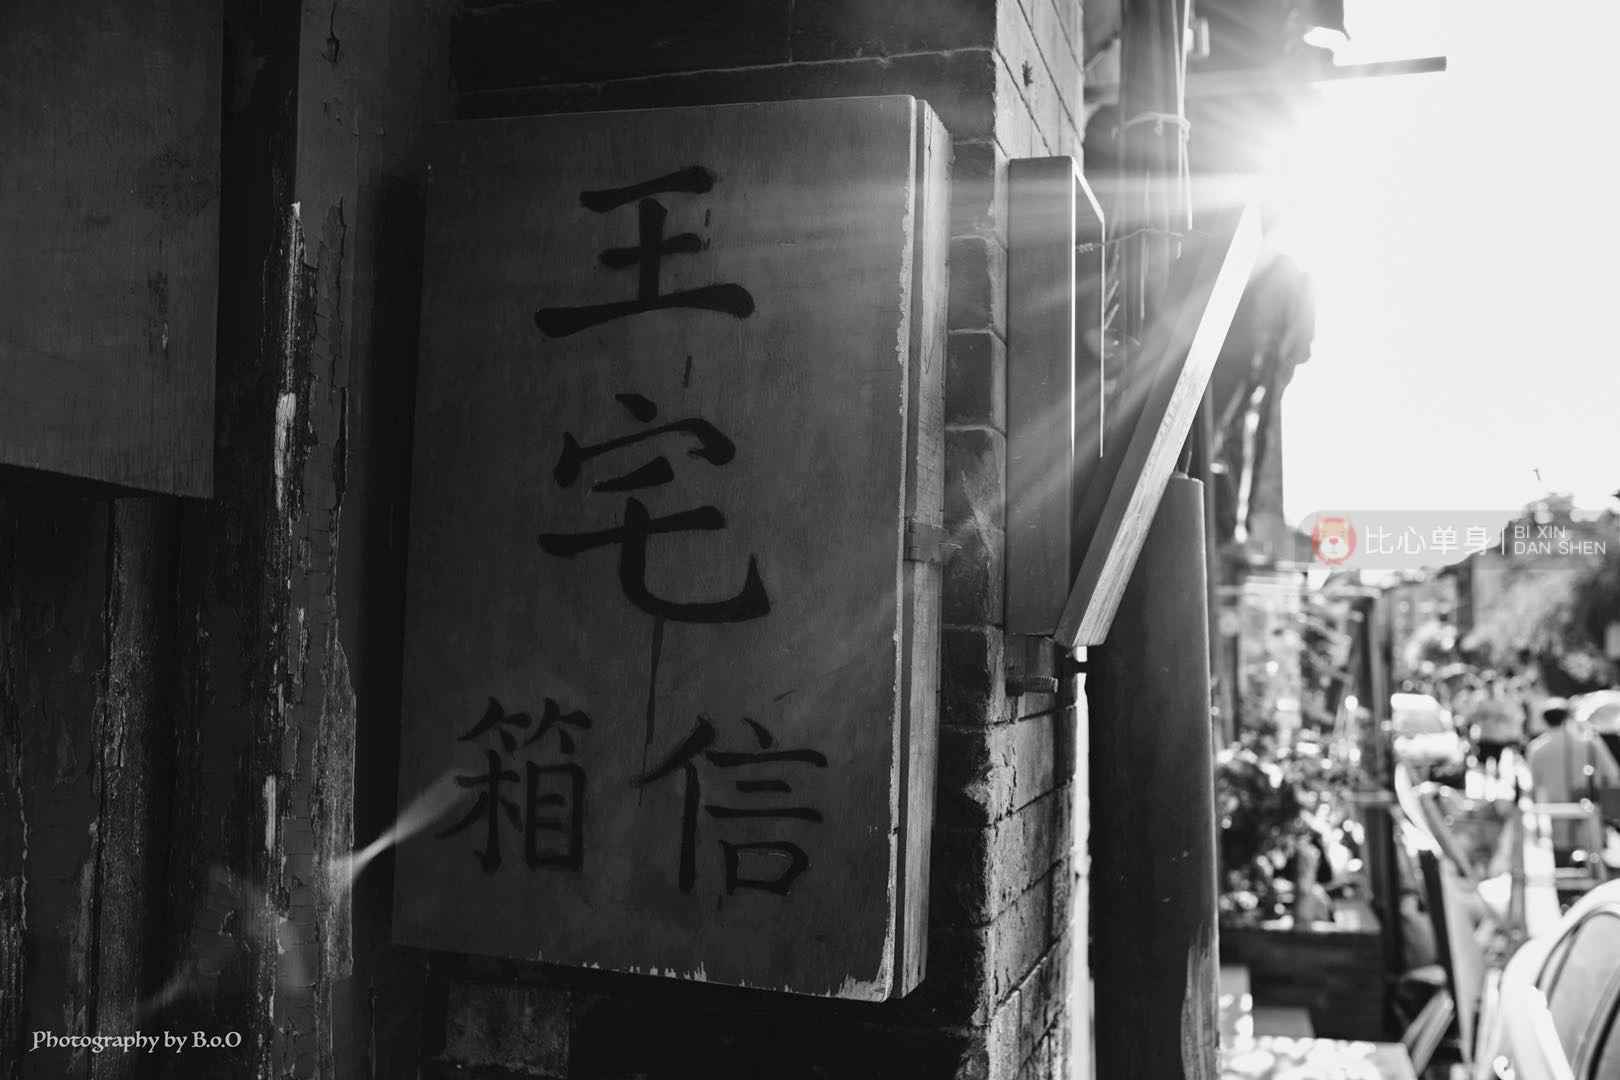 王
宅
信箱
比心单身
BI XIN
DAN SHEN
Photography by B.o.O